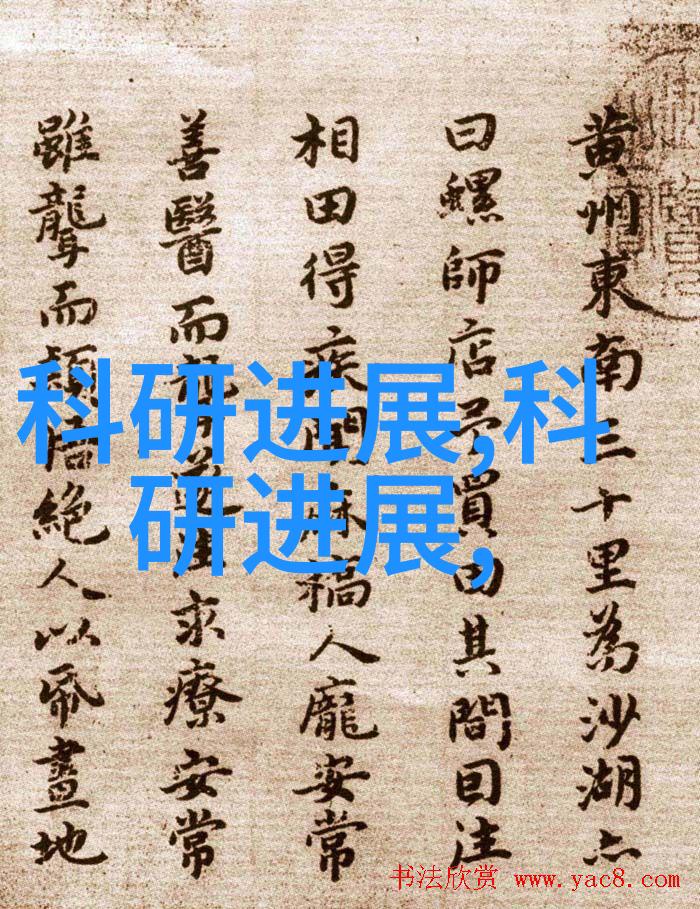 黄州東南三十里為沙湖亦
曰螺師店予買田其間因往
相田得疾聞麻橋人龐安常
善醫而聾遂往求療安常
雖聾而穎悟絶人以帋畫地
科研进展,科
研进展,
书法欣赏 www.yac8.com